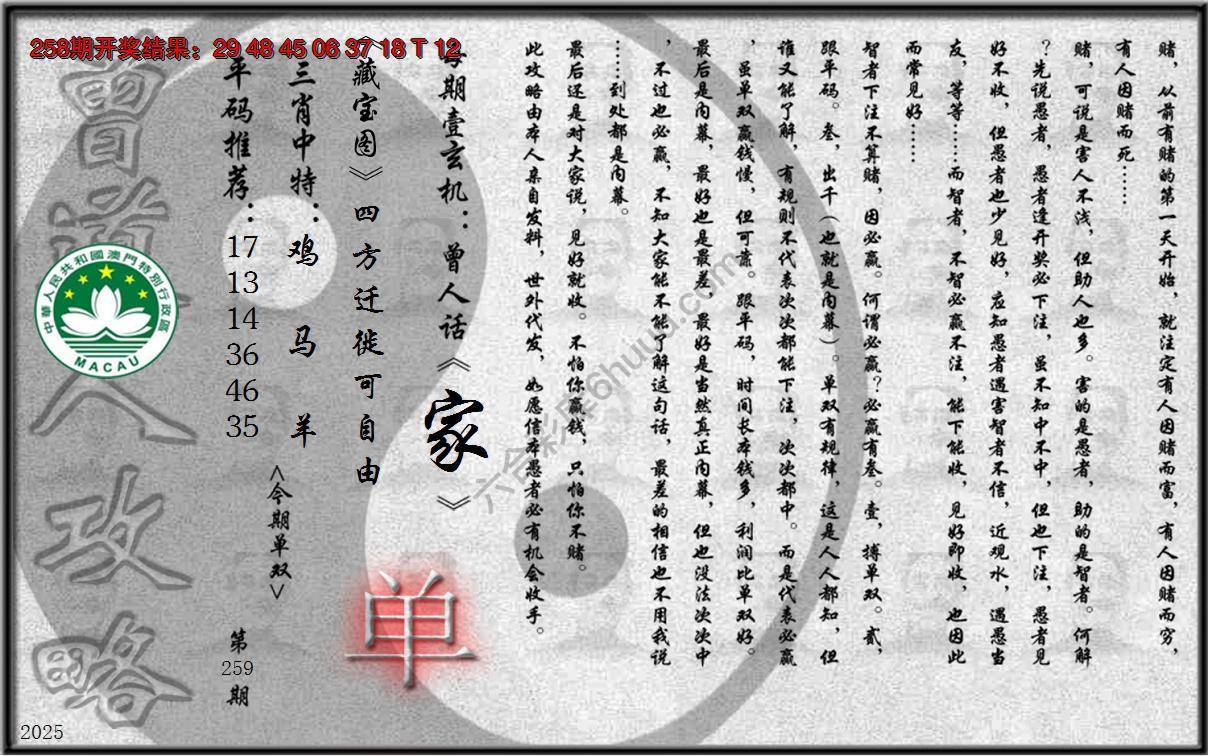 258期开奖结果：29 48 45 06 37 18 T 12
赌，从前有赌的第一天开始，就注定有人因赌而富，有人因赌而穷，
有人因赌而死……
赌，可说是害人不浅，但助人也多。害的是愚者，助的是智者。何解
？先说愚者，愚者逢开奖必下注，虽不知中不中，但也下注，愚者见
好不收，但愚者也少见好，应知愚者遇害智者不信，近观水，遇愚当
友，等等……而智者，不智必赢不注，能下能收，见好即收，也因此
而常见好……
智者下注不算赌，因必赢。何谓必赢？必赢有叁。壹，搏单双。贰，
跟平码。叁，出千（也就是内幕）。单双有规律，这是人人都知，但
谁又能了解，有规则不代表次次都能下注，次次都中。而是代表必赢
，虽单双赢钱慢，但可靠。跟平码，时间长本钱多，利润比单双好。
最后是内幕，最好也是最差，最好是当然真正内幕，但也没法次次中
，不过也必赢，不知大家能不能了解这句话，最差的相信也不用我说
……到处都是内幕。
最后还是对大家说，见好就收。不怕你赢钱，只怕你不赌。
此攻略由本人亲自发料，世外代发，如愿信本愚者必有机会收手。
每期壹玄机：曾人话《家》
《藏宝图》四方迁徙可自由
三肖中特：鸡 马 羊
平码推荐：17
13
14
36
46
35
<今期单双>
单
第
259
期
曾道人攻略
中華人民共和國澳門特別行政區
MACAU
六合彩库6huuu.com
2025